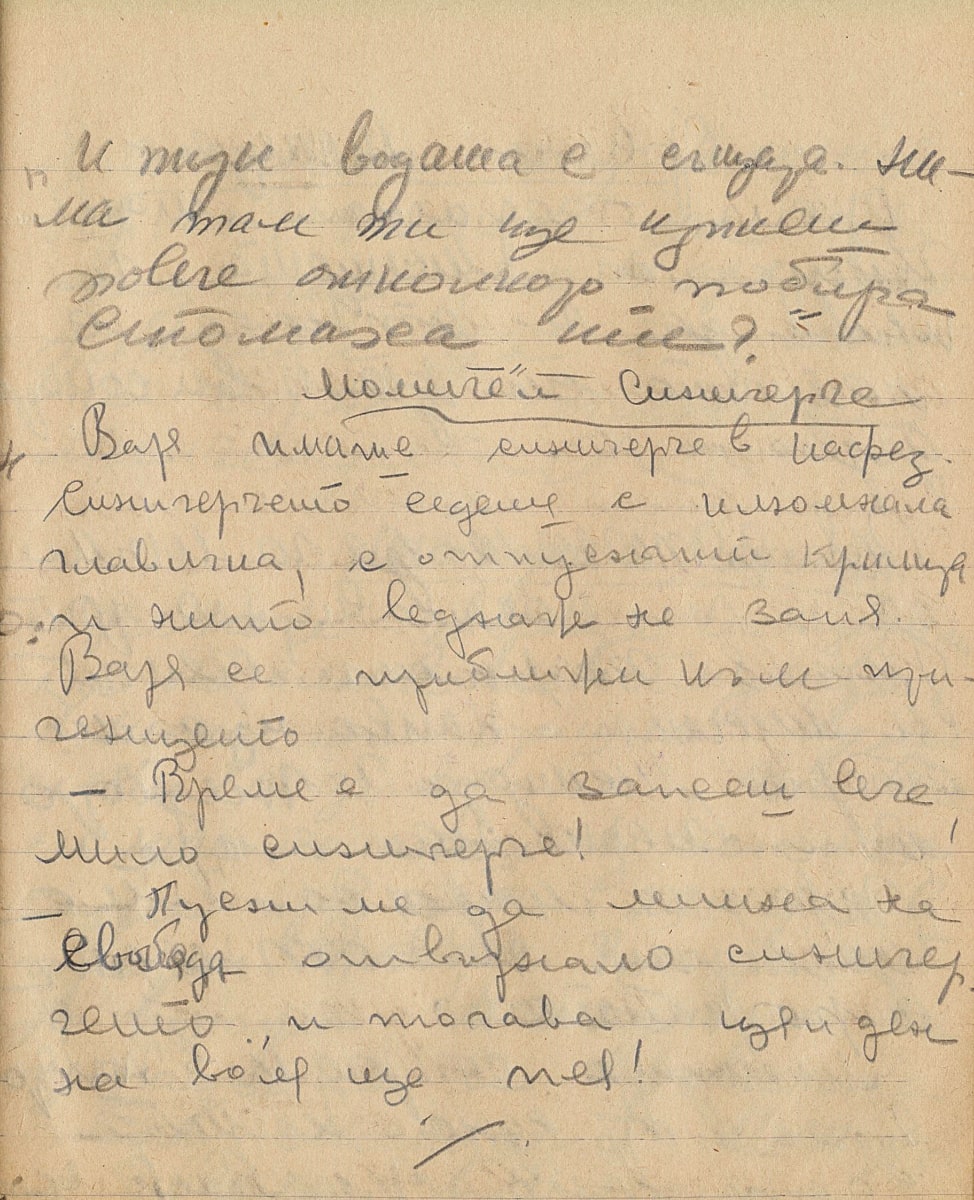 И тузи водата е същата. Ни-
ма там ти ще изпиеш
повече отколкото побира
стомаха ти?
Момичёй Синигерче
Варя имаше синигерче в кафез.
Синигерчето седеше с клюмнала
главичка, с отпуснати крилца
и нито веднаж не запя.
Варя се приближи към при-
чещето
– Време е да запееш вече
мило синигерче!
– Пусни ме да липна на
свобода отвърнало синигер-
чето, и тогава цял ден
на воля ще пея!